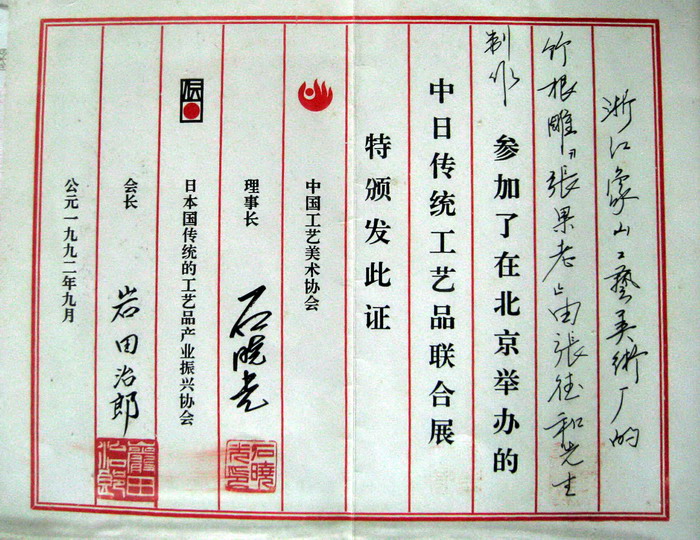 浙江象山工藝美術厂的
竹根雕"張果老"由張德和先生
制作
参加了在北京举办的
中日传统工艺品联合展
特颁发此证
中国工艺美术协会
理事长 石晓光
石曉光印
日本国传统的工艺品产业振兴协会
会长 岩田治郎
巖田治郎
公元一九九二年九月